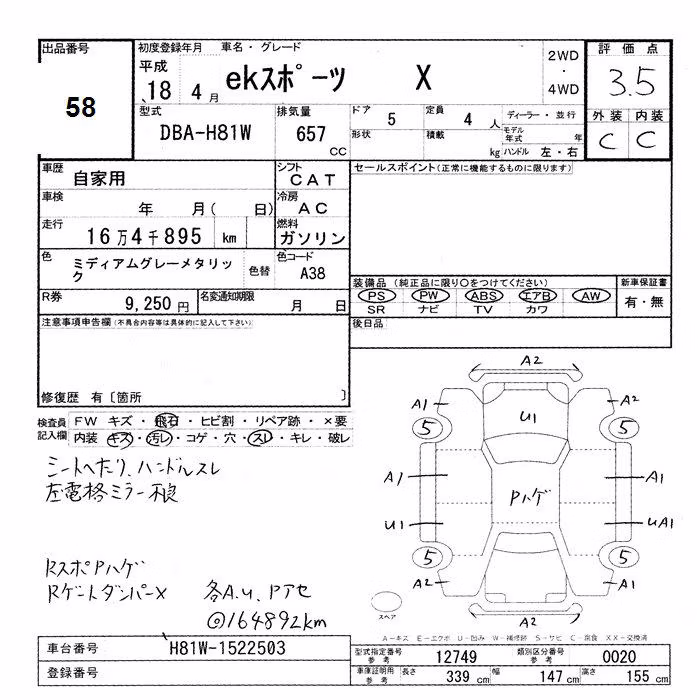 出品番号
58
初度登録年月 車名・グレード
平成 18 4月 ekスポーツ X
2WD
・
4WD
評価点
3.5
外装 内装
C C
型式 DBA-H81W
排気量 657 CC
ドア 5 定員 4 人
形状 積載 kg
ディーラー・並行
モデル年式 年
ハンドル 左・右
車歴 自家用
シフト CAT
セールスポイント(正常に機能するものに限ります)
車検 年 月( 日)
冷房 AC
走行 16万4千895 km
燃料 ガソリン
色 ミディアムグレーメタリック
色替
色コード A38
R券 9,250円
名変通知期限 月 日
装備品 (純正品に限り○をつけてください)
PS PW ABS エアB AW
SR ナビ TV カワ
新車保証書
有・無
注意事項申告欄(不具合内容等は具体的に記入して下さい)
後日品
修復歴 有〔箇所 〕
検査員記入欄
FW キズ・飛石・ヒビ割・リペア跡・×要
内装 キズ・汚レ・コゲ・穴・スレ・キレ・破レ
シートヘたり、ハンドルスレ
左電格ミラー不良
RスポPハゲ
RゲートダンパーX
各A.U、Pアセ
◎164892km
A2
A1 U1 A2
5 5
A1 Pハゲ A1
U1 UA1
5 5
A2 A1
A2
スペア
A-キズ E-エクボ U-凹み W-補修跡 S-サビ C-腐食 XX-交換済
車台番号 H81W-1522503
登録番号
型式指定番号 参考 12749
類別区分番号 参考 0020
車庫証明用 参考 長さ 339 cm 幅 147 cm 高さ 155 cm